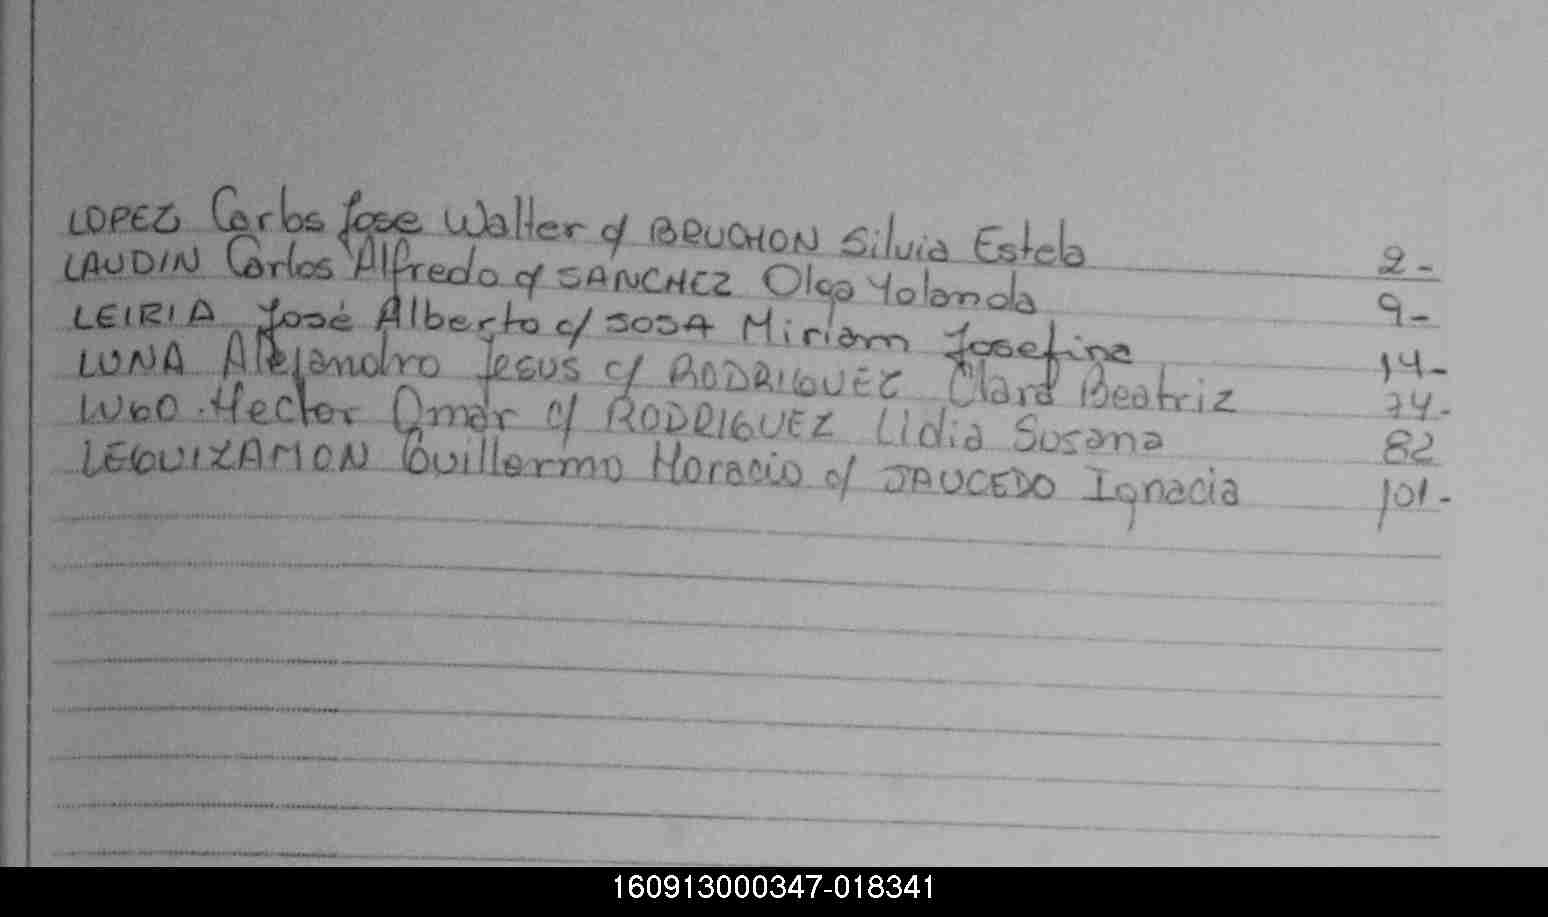 LOPEZ Carlos Jose Walter c/ BRUCHON Silvia Estela 2-
LAUDIN Carlos Alfredo c/ SANCHEZ Olga Yolanda 9-
LEIRIA José Alberto c/ SOSA Miriam Josefina 14-
LUNA Alejandro Jesus c/ RODRIGUEZ Clara Beatriz 74-
LUGO Hector Omar c/ RODRIGUEZ Lidia Susana 82
LEGUIZAMON Guillermo Horacio c/ SAUCEDO Ignacia 101-
160913000347-018341